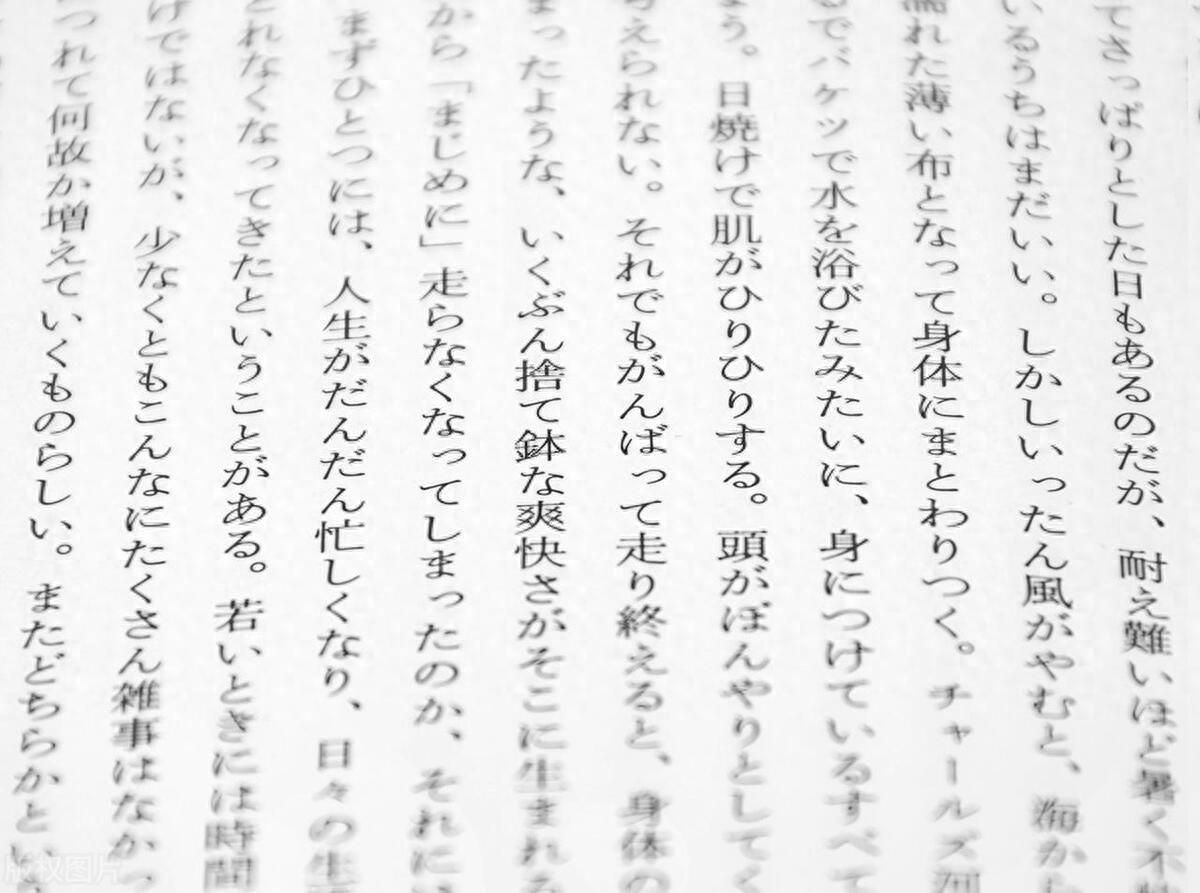 てさっぱりとした日もあるのだが、耐え難いほど暑く不
いるうちはまだいい。しかしいったん風がやむと、海か
濡れた薄い布となって身体にまとわりつく。チャールズ河
るでバケツで水を浴びたみたいに、身につけているすべて
よう。日焼けで肌がひりひりする。頭がぼんやりとしてく
考えられない。それでもがんばって走り終えると、身体の
まったような、いくぶん捨て鉢な爽快さがそこに生まれる
から「まじめに」走らなくなってしまったのか、それにい
まずひとつには、人生がだんだん忙しくなり、日々の生
とれなくなってきたということがある。若いときには時間
けではないが、少なくともこんなにたくさん雑事はなかっ
つれて何故か増えていくものらしい。またどちらかとい
版权图片